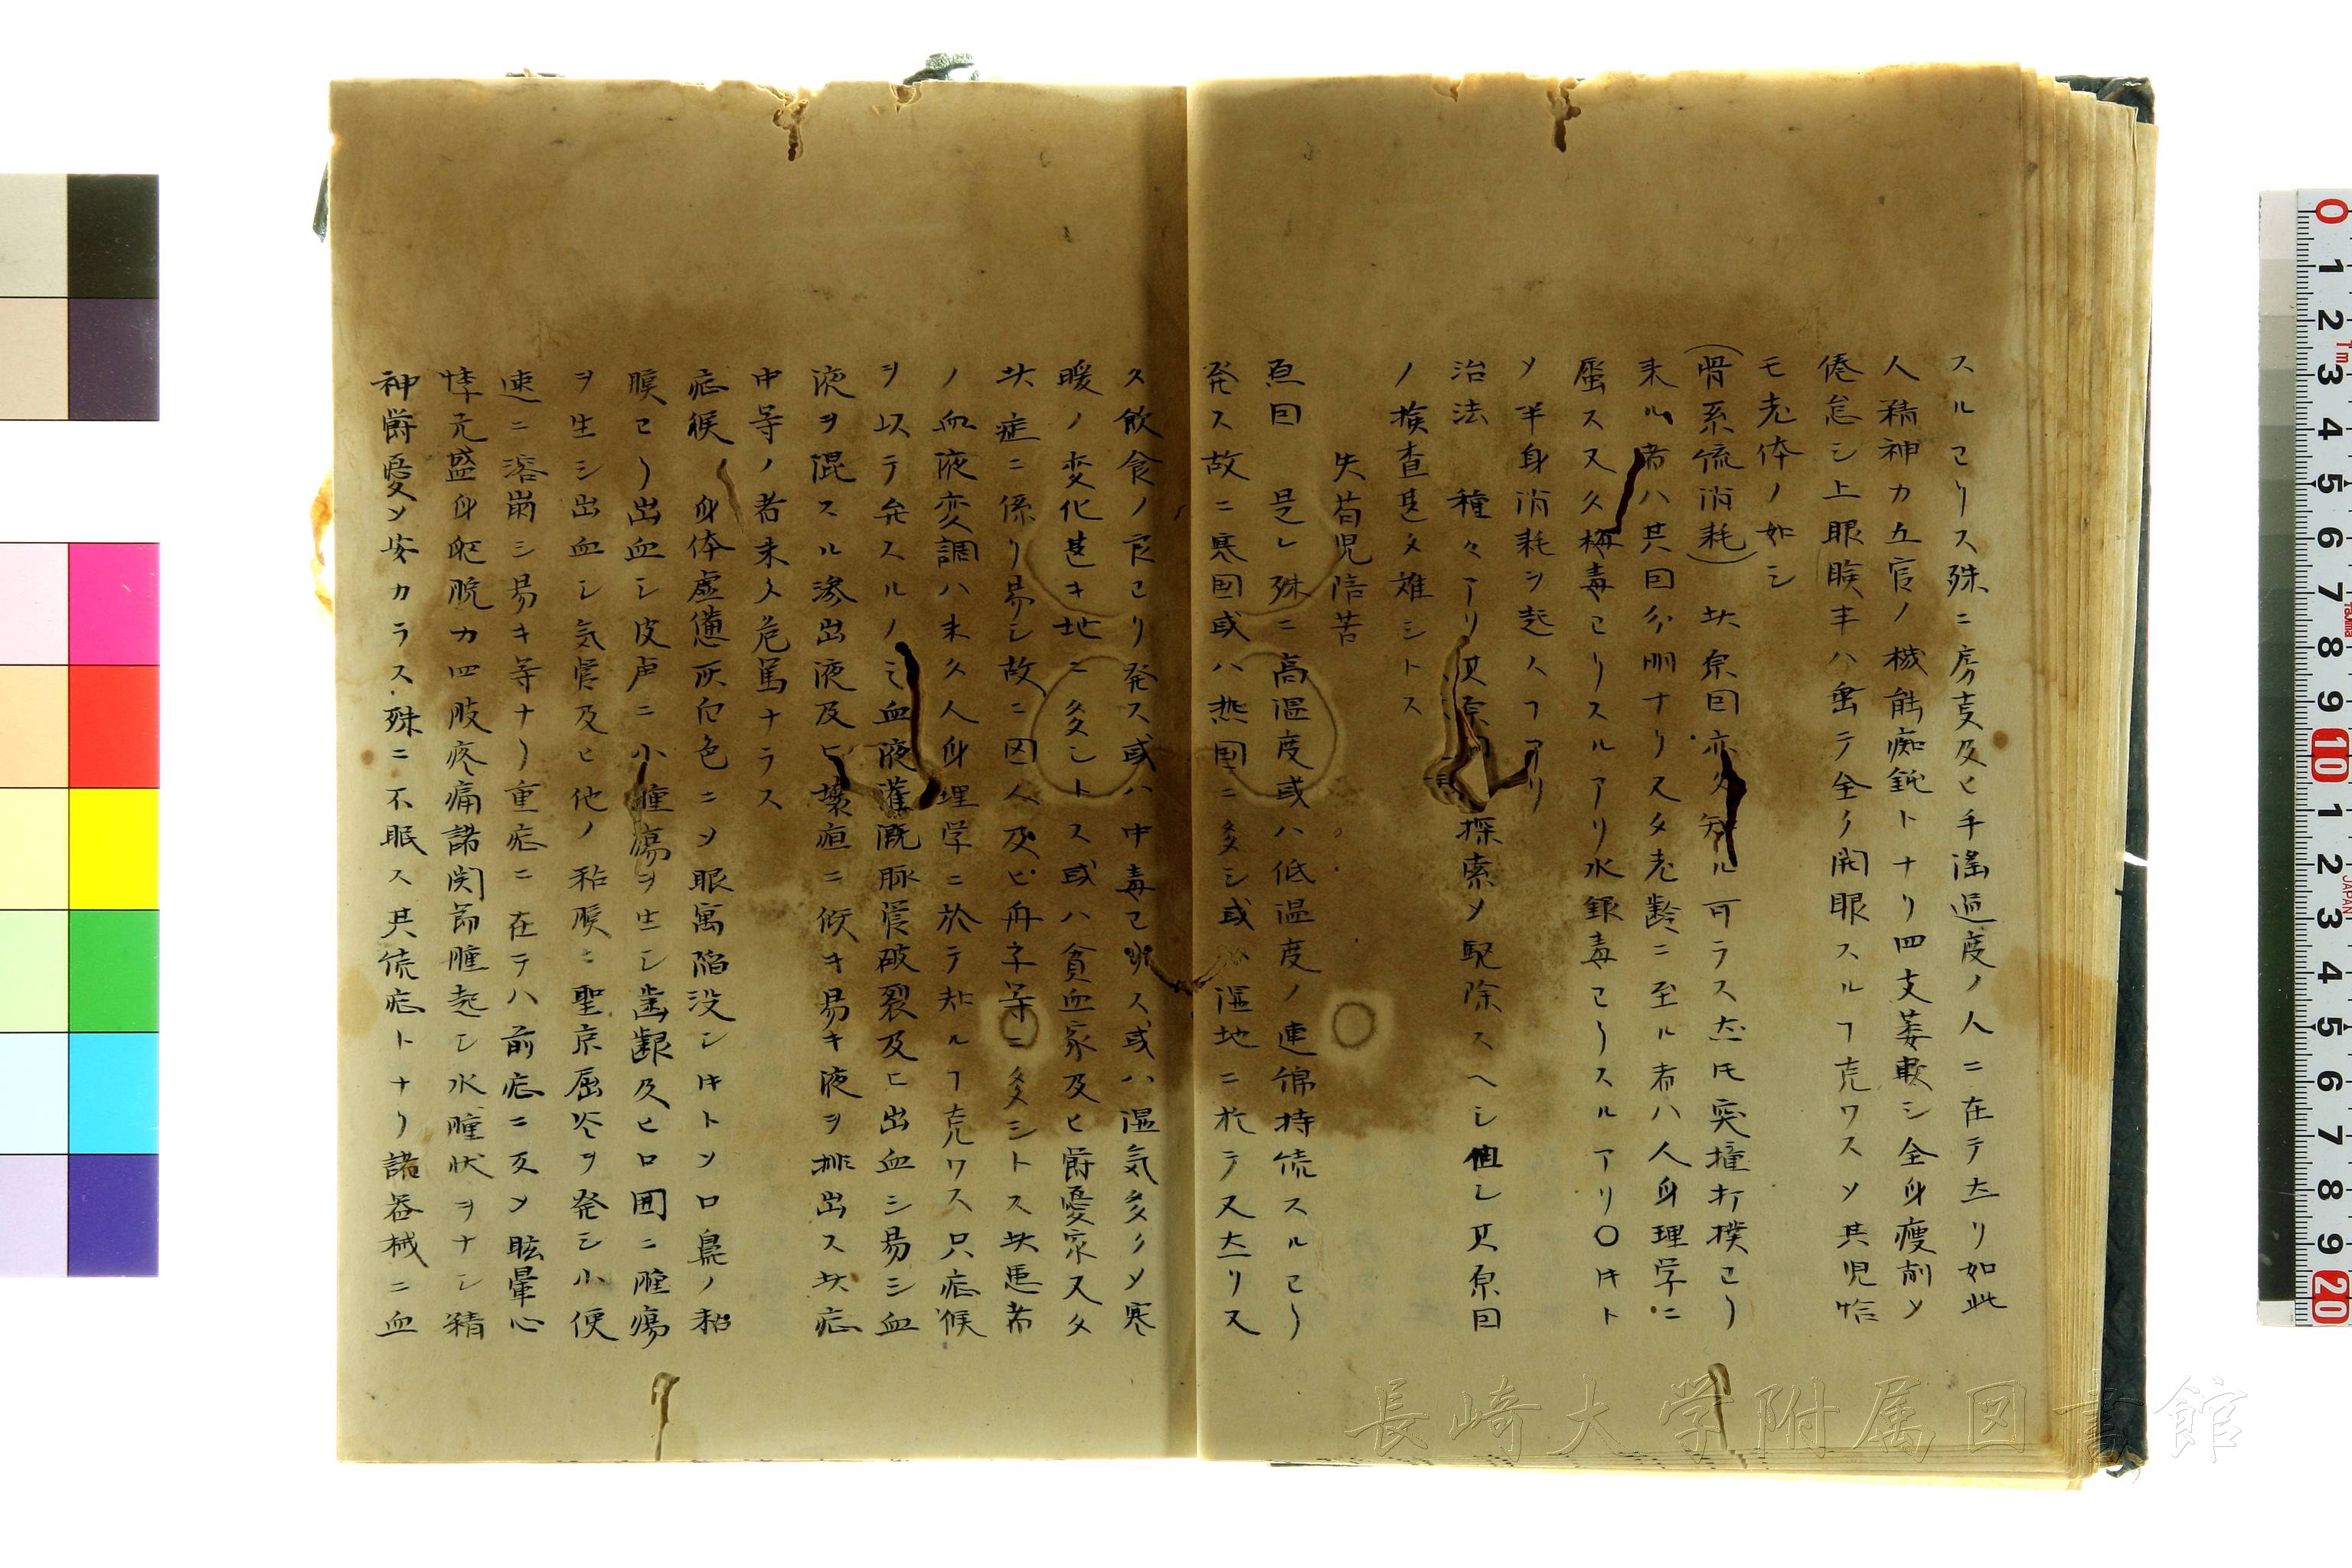 スルヿリス殊ニ房事及ヒ手淫過度ノ人ニ在テ大リ如此
人精神カ五官ノ機能痴鈍トナリ四支萎軟シ全身痩削ソ
倦怠シ上眼瞼半ハ垂テ全ク開眼スルヿ克ワスソ其児恰
モ老体ノ如シ
(脊系流消耗) 此原因亦タ知ル可ラス大氐突撞打撲ヿリ
来ル者ハ其因分明ナリ又タ老齢ニ至ル者ハ人身理学ニ
属ス又久梅毒ヿリスルアリ水銀毒ヿリスルアリ〇ホト
ソ半身消耗ヲ起スヿアリ
治法 種々アリ其原因 探索ソ駆除スヘシ但シ其原因
ノ探査甚タ難シトス
失苟児陪苦
原因 是レ殊ニ高温度或ハ低温度ノ連綿持続スルヿリ
発ス故ニ寒国或ハ熱国ニ多シ或ハ湿地ニ於テ又大リス
ス飲食ノ害ヿリ発ス或ハ中毒ヿリス或ハ湿気多クソ寒
暖ノ変化甚キ地ニ多シトス或ハ貧血家及ヒ欝憂家又タ
此症ニ係リ易シ故ニ囚人及ビ舟子等ニ多シトス此患者
ノ血液変調ハ未タ人身理学ニ於テ知ルヿ克ワス只症候
ヲ以テ弁スルノミ血液灌漑脉管破裂及ヒ出血シ易シ血
液ヲ混スル滲出液及ヒ壊疽ニ傾キ易キ液ヲ排出ス此症
中等ノ者未タ危篤ナラス
症候 身体虚憊灰白色ニソ眼窩陥没シ ソ口鼻ノ粘
膜ヿリ出血シ皮膚ニ小腫瘍ヲ生シ歯齦及ヒ口囲ニ腫瘍
ヲ生シ出血シ気管及ヒ他ノ粘膜ニ聖京屈 ヲ発シ小便
速ニ溶崩シ易キ等ナリ重症ニ在テハ前症ニ反ソ眩暈心
悸亢盛身躰脱力四肢疼痛諸関節腫起シ水腫状ヲナシ精
神欝憂ソ安カラス殊ニ不眠ス其続症トナリ諸器械ニ血
長崎大学附属図書館